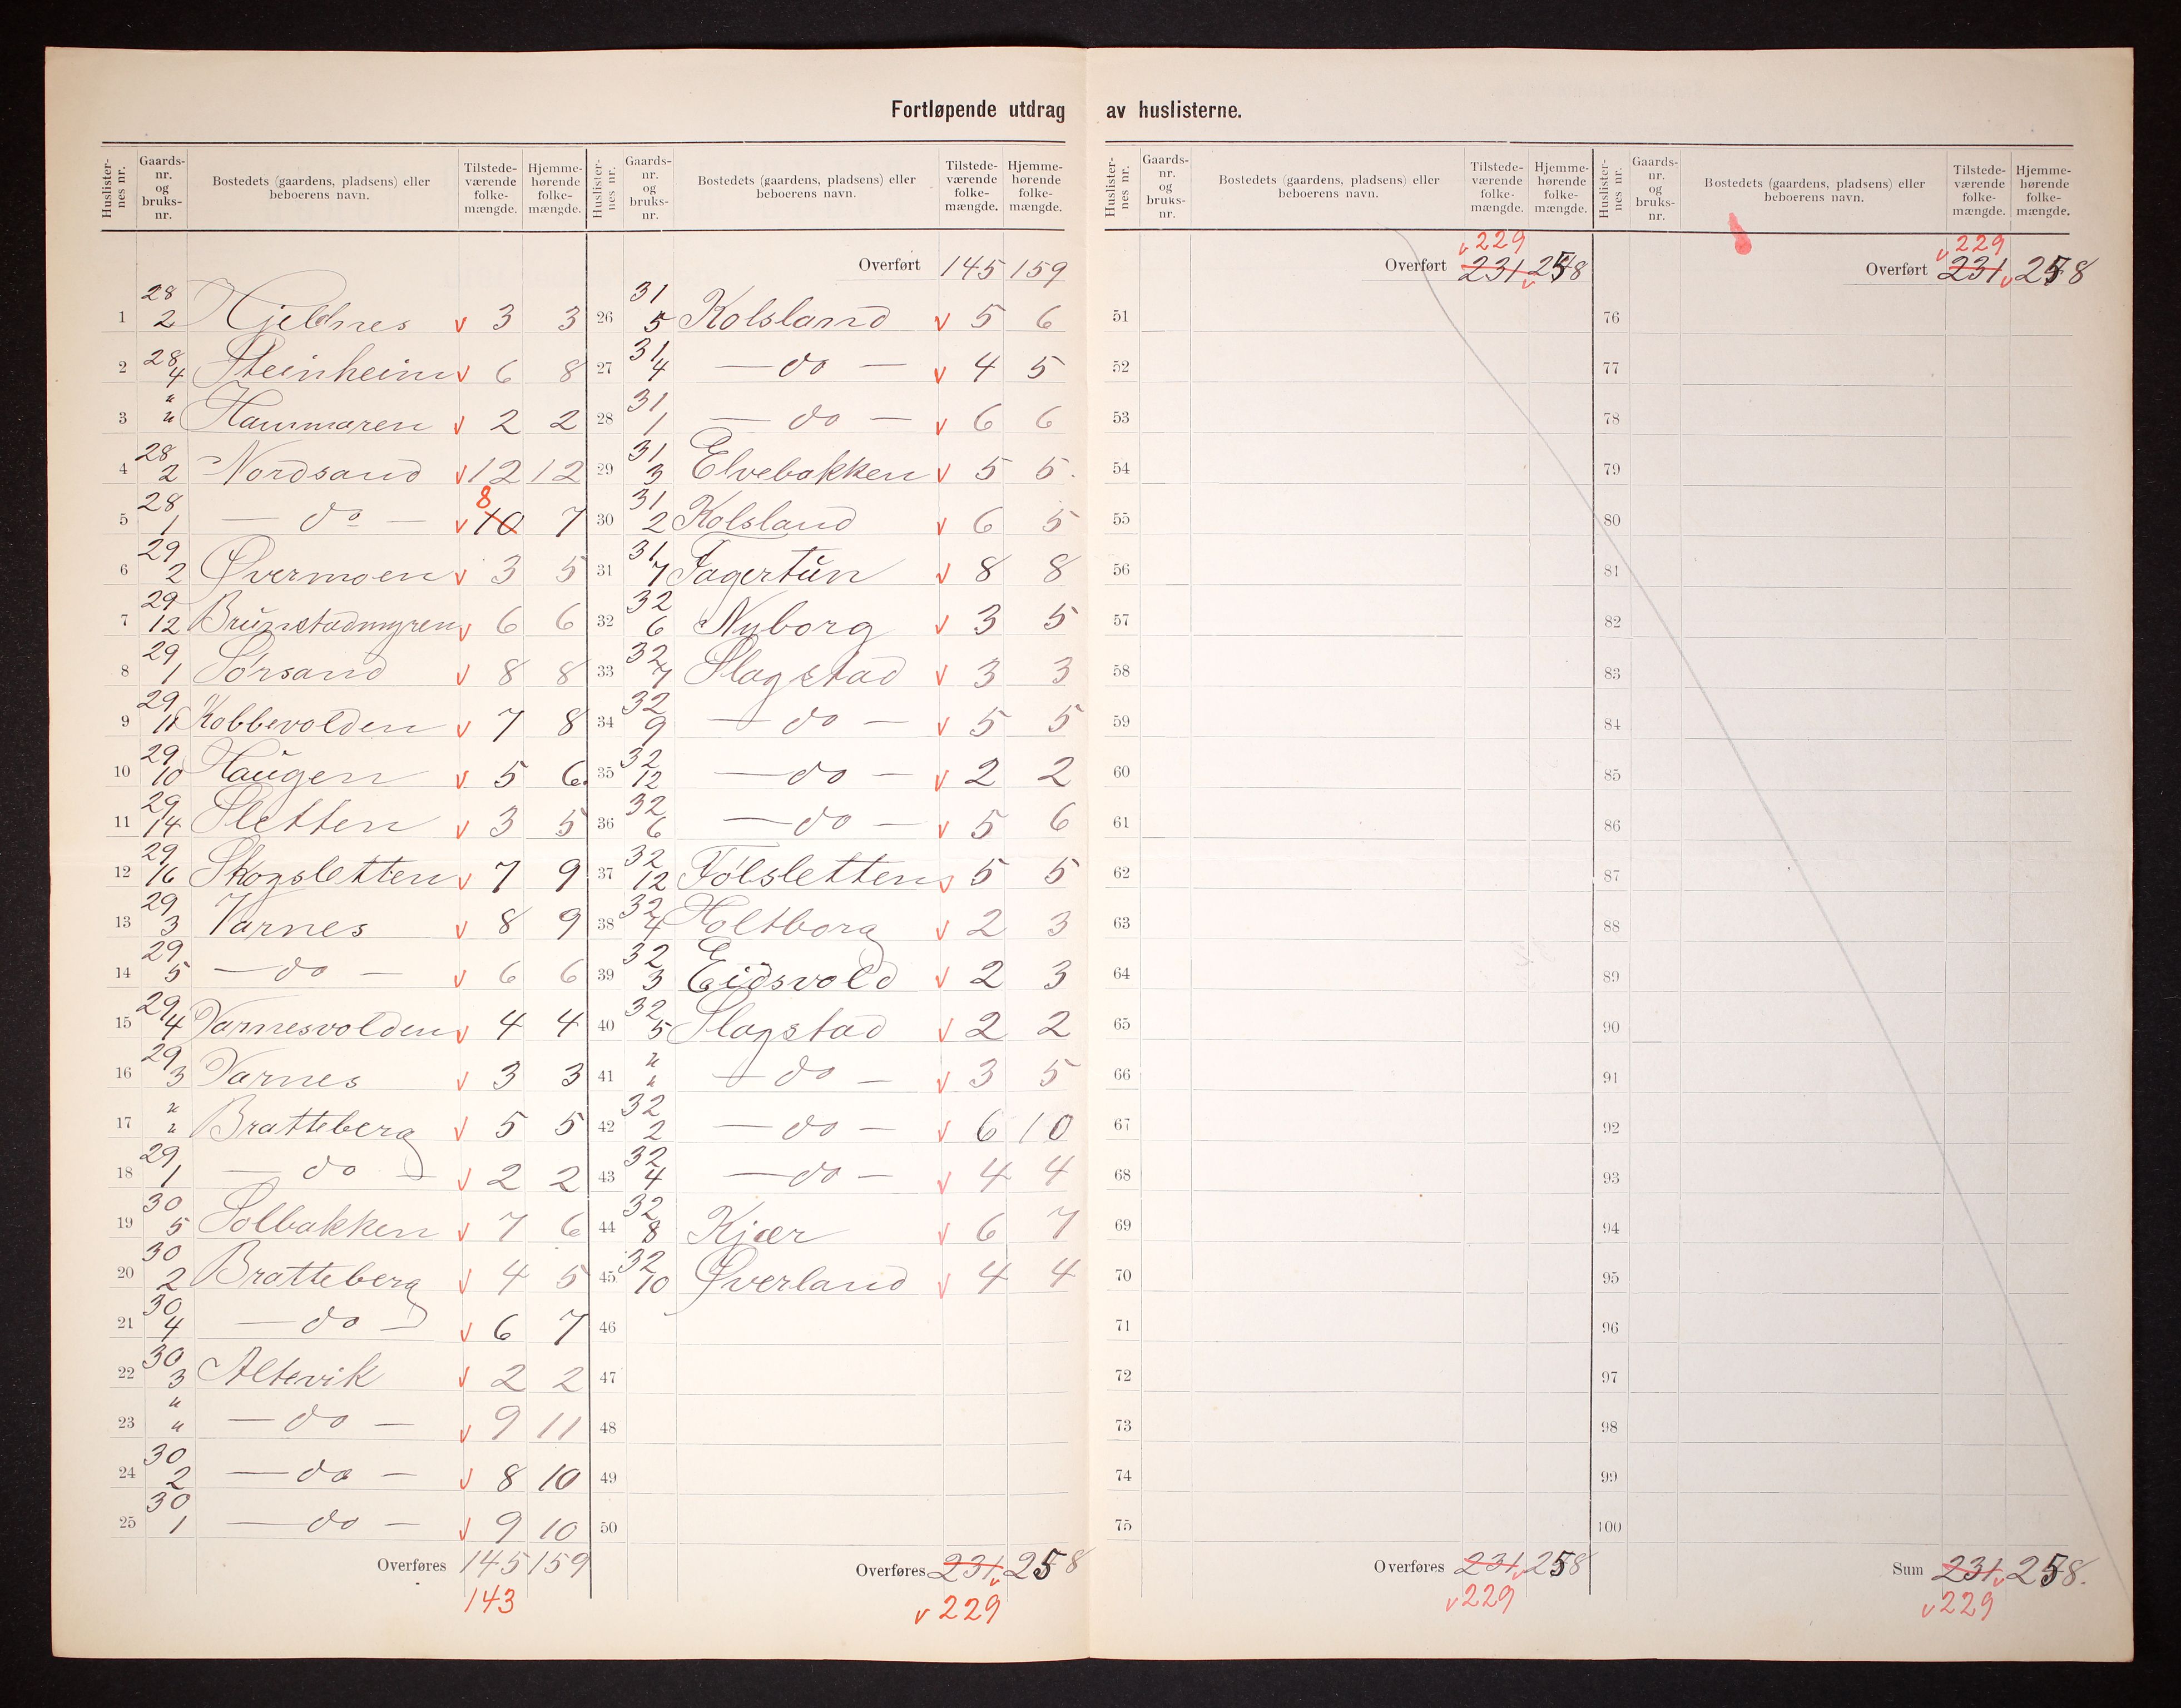 Fortløpende utdrag av huslisterne.
Huslisternes nr. | Gaards-nr. og bruks-nr. | Bostedets (gaardens, pladsens) eller beboerens navn. | Tilstedeværende folkemængde. | Hjemmehørende folkemængde.
1 28/2 Hjeldnes v 3 3
2 28/4 Steinheim v 6 8
3 " " Hammaren v 2 2
4 28/2 Nordsand v 12 12
5 28/1 — do — v 10 8 7
6 29/2 Øvermoen v 3 5
7 29/12 Brunstadmyren v 6 6
8 29/1 Sørsand v 8 8
9 29/11 Kobbevolden v 7 8
10 29/10 Haugen v 5 6
11 29/14 Sletten v 3 5
12 29/16 Skogsletten v 7 9
13 29/3 Varnes v 8 9
14 29/5 — do — v 6 6
15 29/4 Varnesvolden v 4 4
16 29/3 Varnes v 3 3
17 " " Bratteberg v 5 5
18 29/1 — do — v 2 2
19 30/5 Solbakken v 7 6
20 30/2 Bratteberg v 4 5
21 30/4 — do — v 6 7
22 30/3 Altevik v 2 2
23 " " — do — v 9 11
24 30/2 — do — v 8 10
25 30/1 — do — v 9 10
Overføres 145 159
143
Huslisternes nr. | Gaards-nr. og bruks-nr. | Bostedets (gaardens, pladsens) eller beboerens navn. | Tilstedeværende folkemængde. | Hjemmehørende folkemængde.
Overført 145 159
26 31/5 Kolsland v 5 6
27 31/4 — do — v 4 5
28 31/1 — do — v 6 6
29 31/3 Elvebakken v 5 5
30 31/2 Kolsland v 6 5
31 31/7 Fagertun v 8 8
32 32/6 Nyborg v 3 5
33 32/7 Slagstad v 3 3
34 32/9 — do — v 5 5
35 32/12 — do — v 2 2
36 32/6 — do — v 5 6
37 32/12 Følsletten v 5 5
38 32/4 Holtborg v 2 3
39 32/3 Eidsvold v 2 3
40 32/5 Slagstad v 2 2
41 " " — do — v 3 5
42 32/2 — do — v 6 10
43 32/4 — do — v 4 4
44 32/8 Kjær v 6 7
45 32/10 Øverland v 4 4
46
47
48
49
50
Overføres 231 v 258
v 229
Huslisternes nr. | Gaards-nr. og bruks-nr. | Bostedets (gaardens, pladsens) eller beboerens navn. | Tilstedeværende folkemængde. | Hjemmehørende folkemængde.
v 229
Overført 231 v 258
51
52
53
54
55
56
57
58
59
60
61
62
63
64
65
66
67
68
69
70
71
72
73
74
75
Overføres 231 v 258
v 229
Huslisternes nr. | Gaards-nr. og bruks-nr. | Bostedets (gaardens, pladsens) eller beboerens navn. | Tilstedeværende folkemængde. | Hjemmehørende folkemængde.
v 229
Overført 231 v 258
76
77
78
79
80
81
82
83
84
85
86
87
88
89
90
91
92
93
94
95
96
97
98
99
100
Sum 231 v 258.
v 229